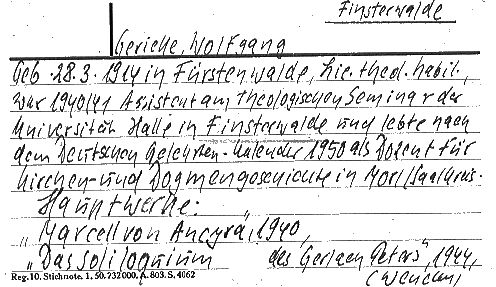 Finsterwalde
Gericke, Wolfgang
Geb. 28.3.1914 in Fürstenwalde, Lic. theol. habil.,
war 1940/41 Assistent am Theologischen Seminar der
Universität Halle in Finsterwalde und lebte nach
dem Deutschen Gelehrten-Kalender 1950 als Dozent für
Kirchen- und Dogmengeschichte in Morl/Saalkreis.
Hauptwerke:
„Marcell von Ancyra", 1940,
„Das Soliloquium des Gerlach Peters", 1944,
Reg. 10. Stichnote. 1. 50. 732000. A. 803. S. 4062